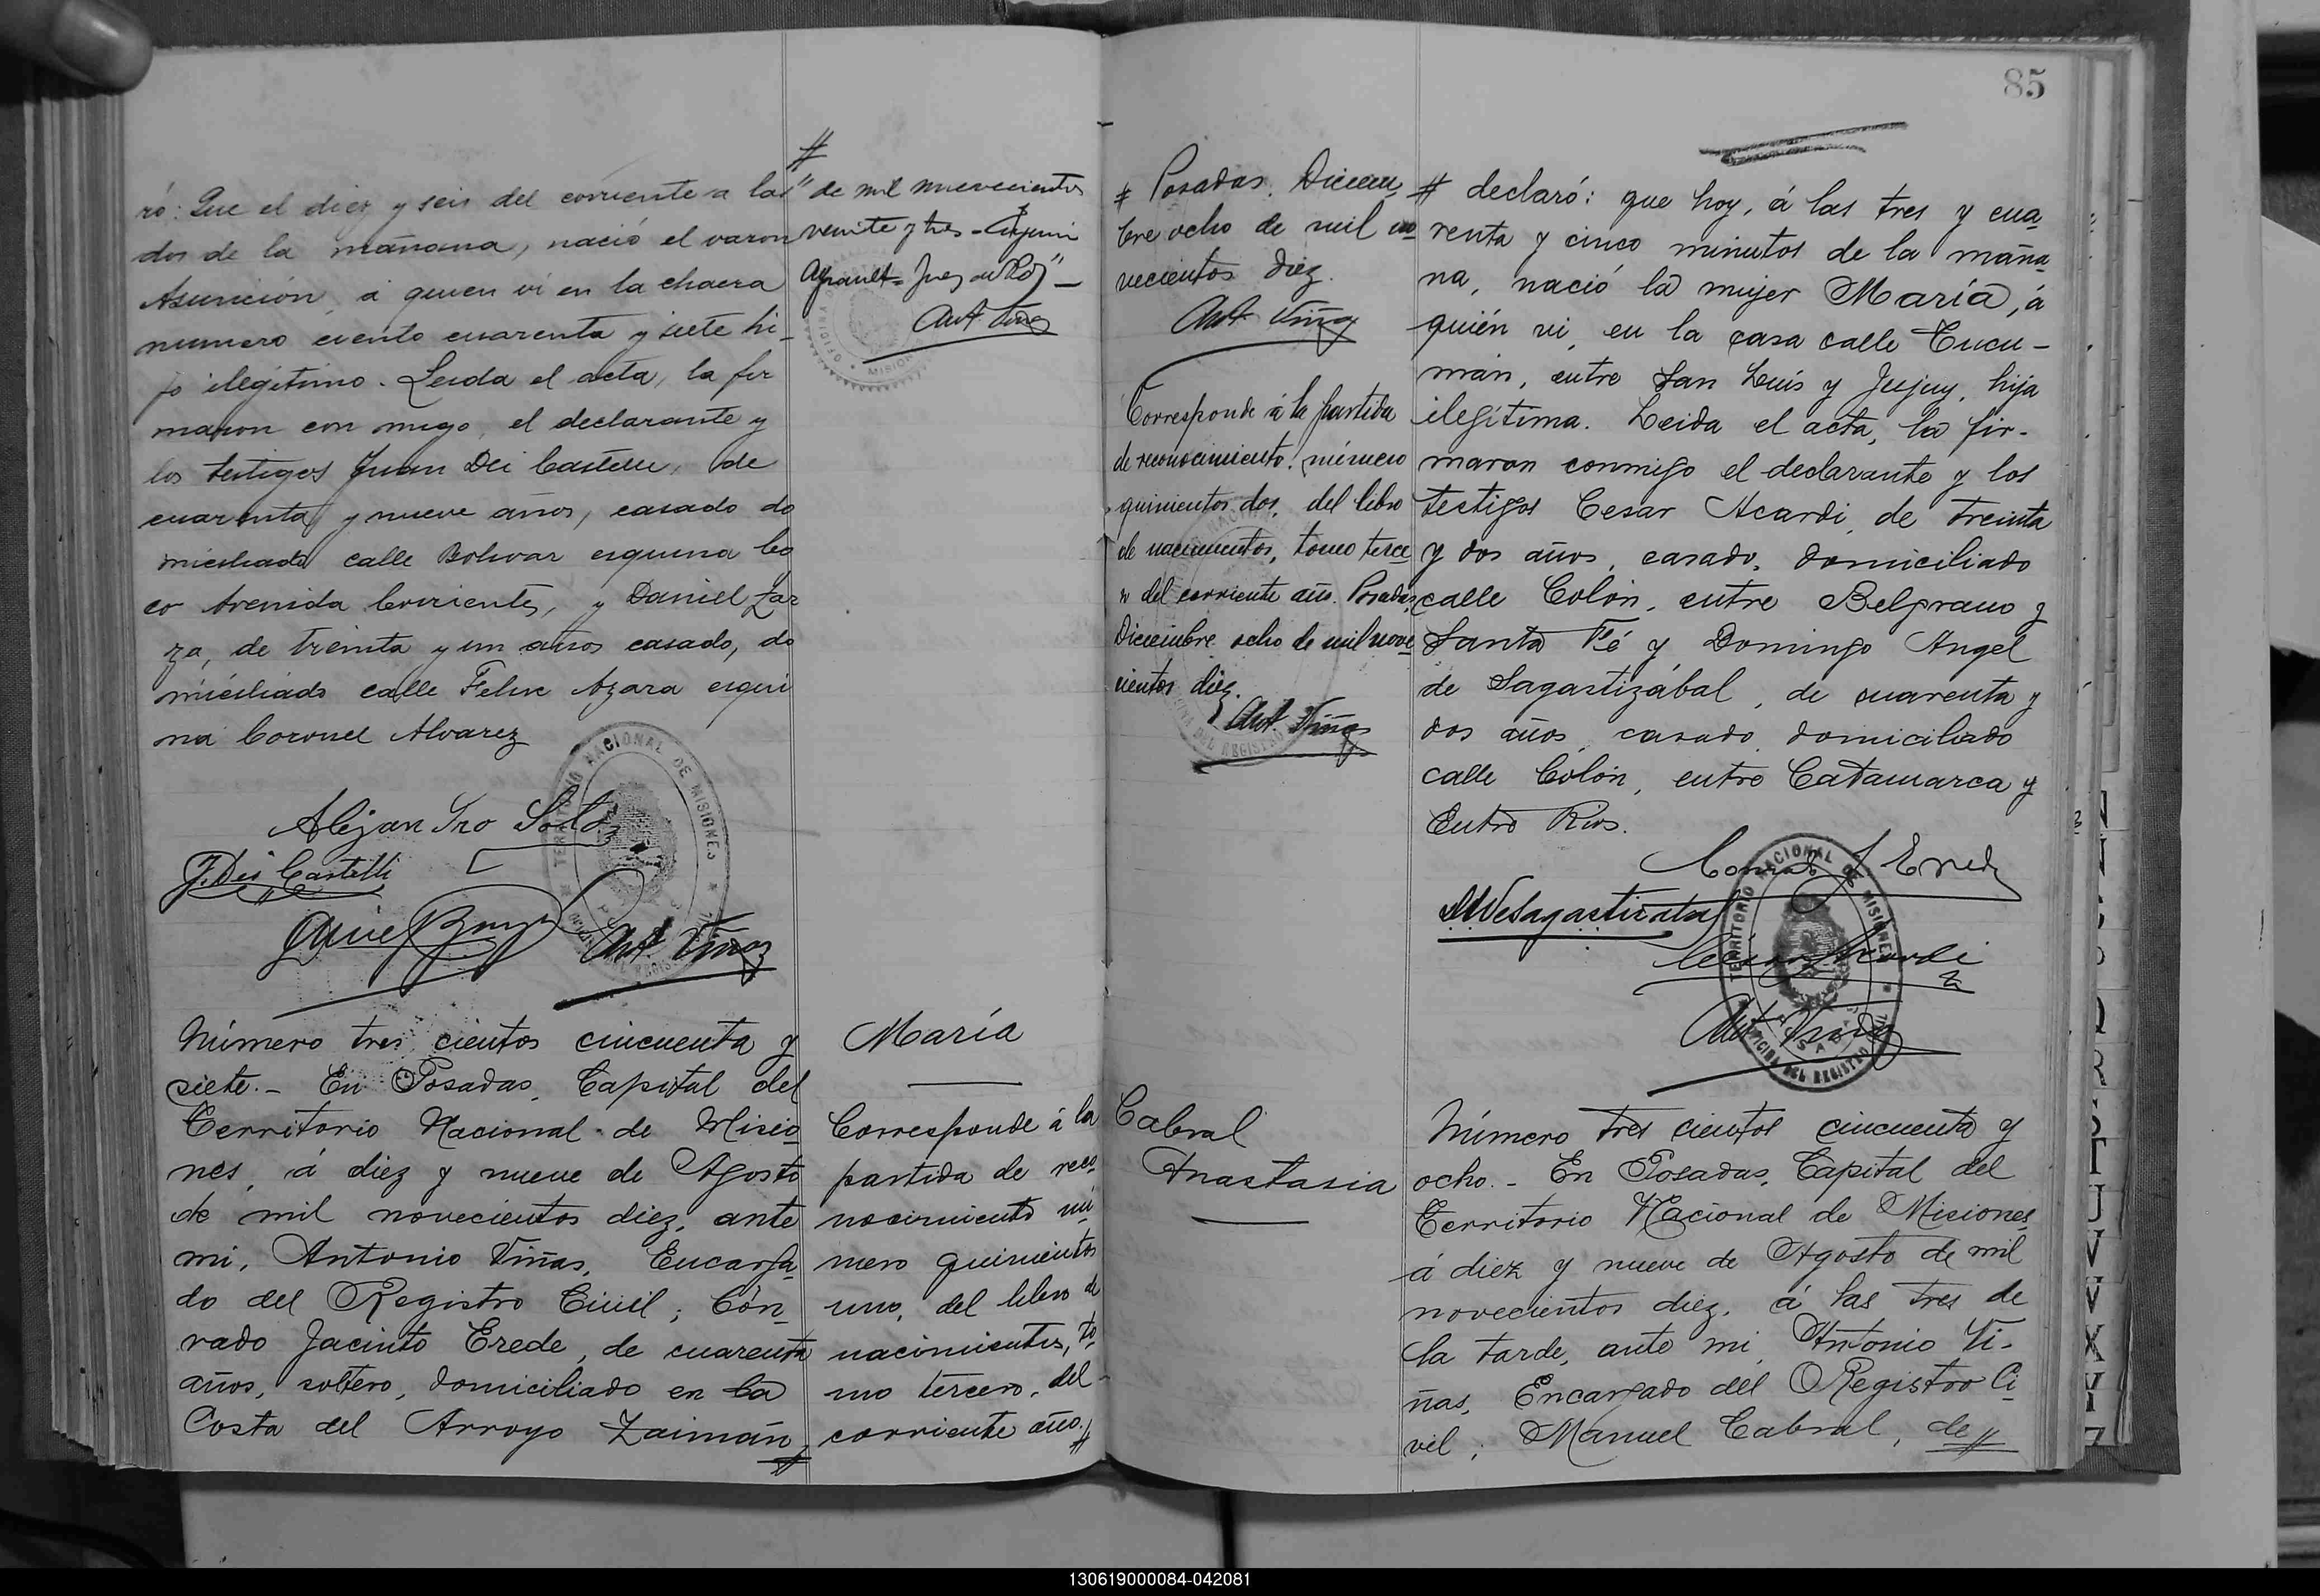 ró: Que el diez y seis del corriente a las
dos de la mañana, nació el varon
Asunción, a quien ví en la chacra
numero ciento cuarenta y siete hi-
jo ilegítimo. Leida el acta, la fir
maron con migo, el declarante y
los testigos Juan Dei Castelli, de
cuarenta y nueve años, casado do
miciliado calle Bolivar esquina bo
co Avenida Corrientes, y Daniel Zar
za, de treinta y un años casado, do
miciliado calle Felix Azara esqui
na Coronel Alvarez
Alejandro Soto
J. Dei Castelli
Ant Viñas
Número tres cientos cincuenta y
siete.- En Posadas, Capital del
Territorio Nacional de Misio
nes, á diez y nueve de Agosto
de mil novecientos diez, ante
mi, Antonio Viñas, Encarga
do del Registro Civil; Con
rado Jacinto Erede, de cuarenta
años, soltero, domiciliado en la
Costa del Arroyo Zaimán,
#
" de mil novecientos
veinte y tres -
Juez de Paz" -
Ant Viñas
María
Corresponde á la
partida de reco
nocimiento nú
mero quinientos
uno, del libro de
nacimientos, to
mo tercero, del
corriente año. #
85
# Posadas, Diciem
bre ocho de mil no
vecientos diez.
Ant Viñas
Corresponde á la partida
de reconocimiento número
quinientos dos, del libro
de nacimientos, tomo terce
ro del corriente año. Posadas,
Diciembre ocho de mil nove
cientos diez.
Ant Viñas
Cabral
Anastasia
# declaró: que hoy, á las tres y cua
renta y cinco minutos de la maña
na, nació la mujer María, á
quién vi, en la casa calle Tucu-
mán, entre San Luis y Jujuy, hija
ilegítima. Leida el acta, la fir-
maron conmigo el declarante y los
testigos Cesar Acardi, de treinta
y dos años, casado, domiciliado
calle Colón, entre Belgrano y
Santa Fé y Domingo Angel
de Sagastizábal, de cuarenta y
dos años, casado, domiciliado
calle Colón, entre Catamarca y
Entre Rios.
Conrado J Erede
Cesar Acardi
Ant Viñas
TERRITORIO NACIONAL DE MISIONES
Número tres cientos cincuenta y
ocho. - En Posadas, Capital del
Territorio Nacional de Misiones,
á diez y nueve de Agosto de mil
novecientos diez, á las tres de
la tarde, ante mi, Antonio Vi-
ñas, Encargado del Registro Ci
vil; Manuel Cabral, de #
130619000084-042081